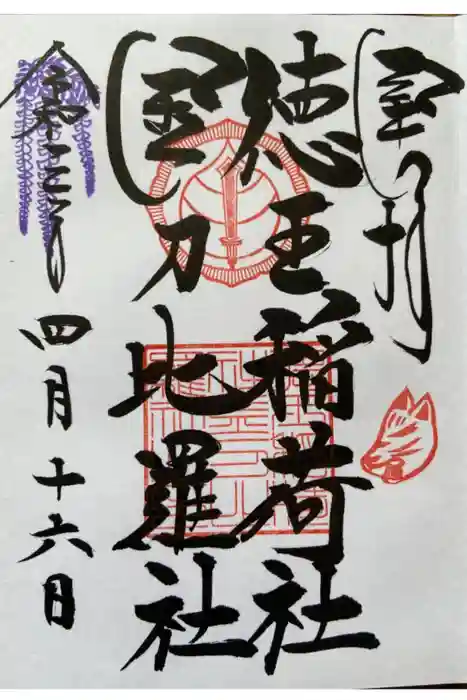 奉拝
徳王稲荷社
金刀比羅社
令和 年四月十六日